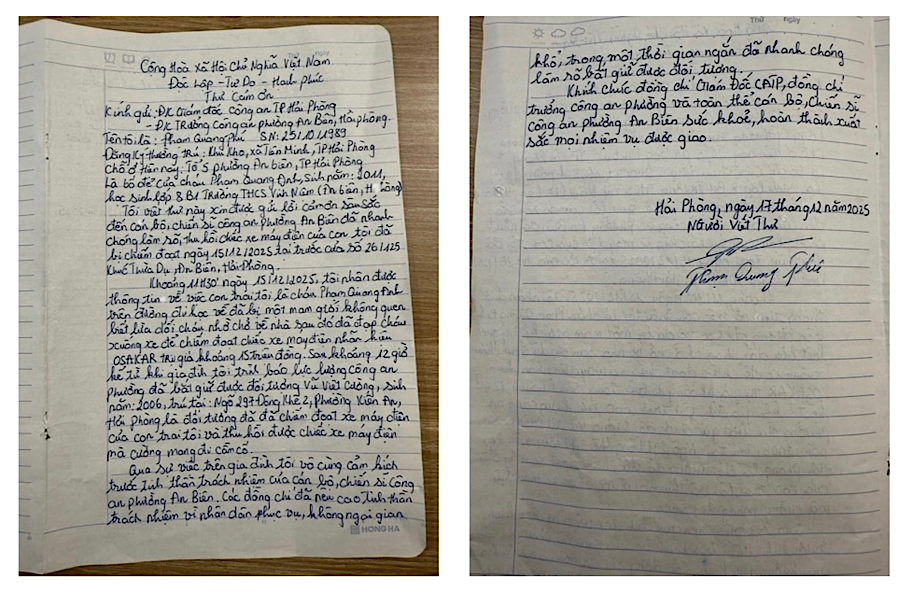 Thứ ngày
Cộng Hoà Xã Hội Chủ Nghĩa Việt Nam
Độc Lập - Tự Do - Hạnh phúc
Thư Cảm Ơn
Kính gửi: Đ/c Giám đốc công an TP Hải Phòng
- Đ/c Trưởng Công an phường An Biên, Hải phòng
Tên tôi là: Phạm Quang Phú SN: 25/10/1989
Đăng ký thường trú: Khu Kho, xã Tân Minh, TP Hải Phòng
Chỗ ở hiện nay: Tổ 5 phường An biên, TP Hải Phòng
Là bố đẻ của cháu Phạm Quang Anh, sinh năm: 2011,
học sinh lớp 8B1 Trường THCS Vĩnh Niệm (An biên, H
Tôi viết thư này xin được gửi lời cảm ơn sâu sắc
đến cán bộ, chiến sĩ công an phường An Biên đã nhanh
chóng làm rõ, thu hồi chiếc xe máy điện của con tôi đã
bị chiếm đoạt ngày 15/12/2025 tại trước cửa số 261/125
Khúc Thừa Dụ, An Biên, Hải Phòng.
Khoảng 11H30' ngày 15/12/2025, tôi nhận được
thông tin về việc con trai tôi là cháu Phạm Quang Anh
trên đường đi học về đã bị một nam giới không quen
biết lừa dối cháu nhờ chở về nhà sau đó đã đạp cháu
xuống xe để chiếm đoạt chiếc xe máy điện nhãn hiệu
OSAKAR trị giá khoảng 15 triệu đồng. Sau khoảng 12 giờ
kể từ khi gia đình tôi trình báo lực lượng công an
phường đã bắt giữ được đối tượng Vũ Việt Cường, sinh
năm: 2006, trú tại: Ngõ 297 Đồng Khê 2, Phường Kiến An,
Hải phòng là đối tượng đã đã chiếm đoạt xe máy điện
của con trai tôi và thu hồi được chiếc xe máy điện
mà cường mang đi cầm cố.
Qua sự việc trên gia đình tôi vô cùng cảm kích
trước tinh thần trách nhiệm của cán bộ, chiến sĩ công
an phường An Biên. Các đồng chí đã nêu cao tinh thần
trách nhiệm vì nhân dân phục vụ, không ngại gian
HONG HA
Thứ ngày
khổ, trong một thời gian ngắn đã nhanh chóng
làm rõ bắt giữ được đối tượng.
Kính chúc đồng chí Giám Đốc CATP, đồng chí
trưởng công an phường và toàn thể cán bộ, chiến sĩ
công an phường An Biên sức khoẻ, hoàn thành xuất
sắc mọi nhiệm vụ được giao.
Hải Phòng, ngày 17 tháng 12 năm 2025
Người Viết Thư
Phạm Quang Phú